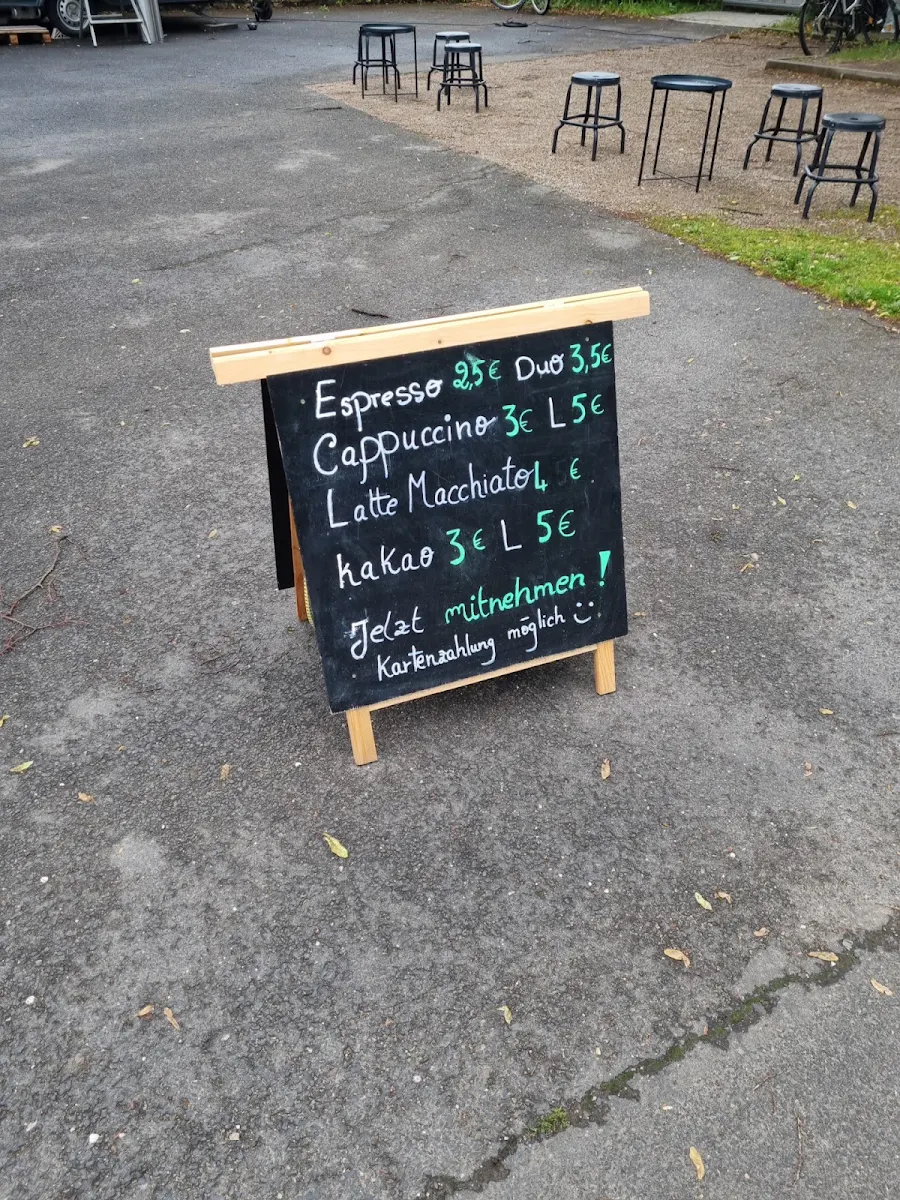 Espresso 2,5€ Duo 3,5€
Cappuccino 3€ L 5€
Latte Macchiato 4 €
kakao 3€ L 5€
Jetzt mitnehmen!
Kartenzahlung möglich :)